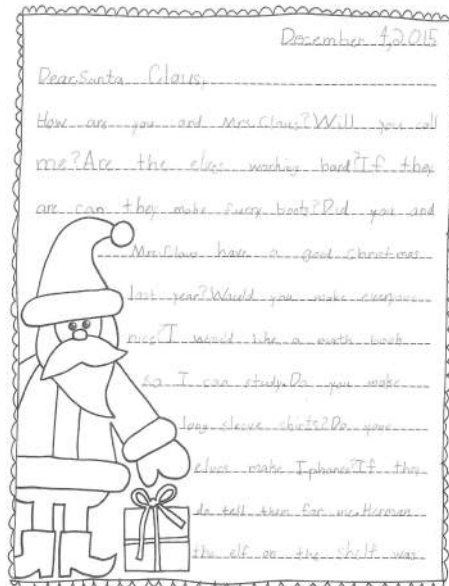 December 4, 2015
Dear Santa Claus,
How are you and Mrs. Claus? Will you call
me? Are the elves working hard? If they
are can they make furry boots? Did you and
Mrs. Claus have a good christmas
last year? Would you make everyone
nice? I would like a math book
so I can study. Do you make
long sleeve shirts? Do your
elves make Iphones? If they
do tell them for me. Herman
the elf on the shelf was